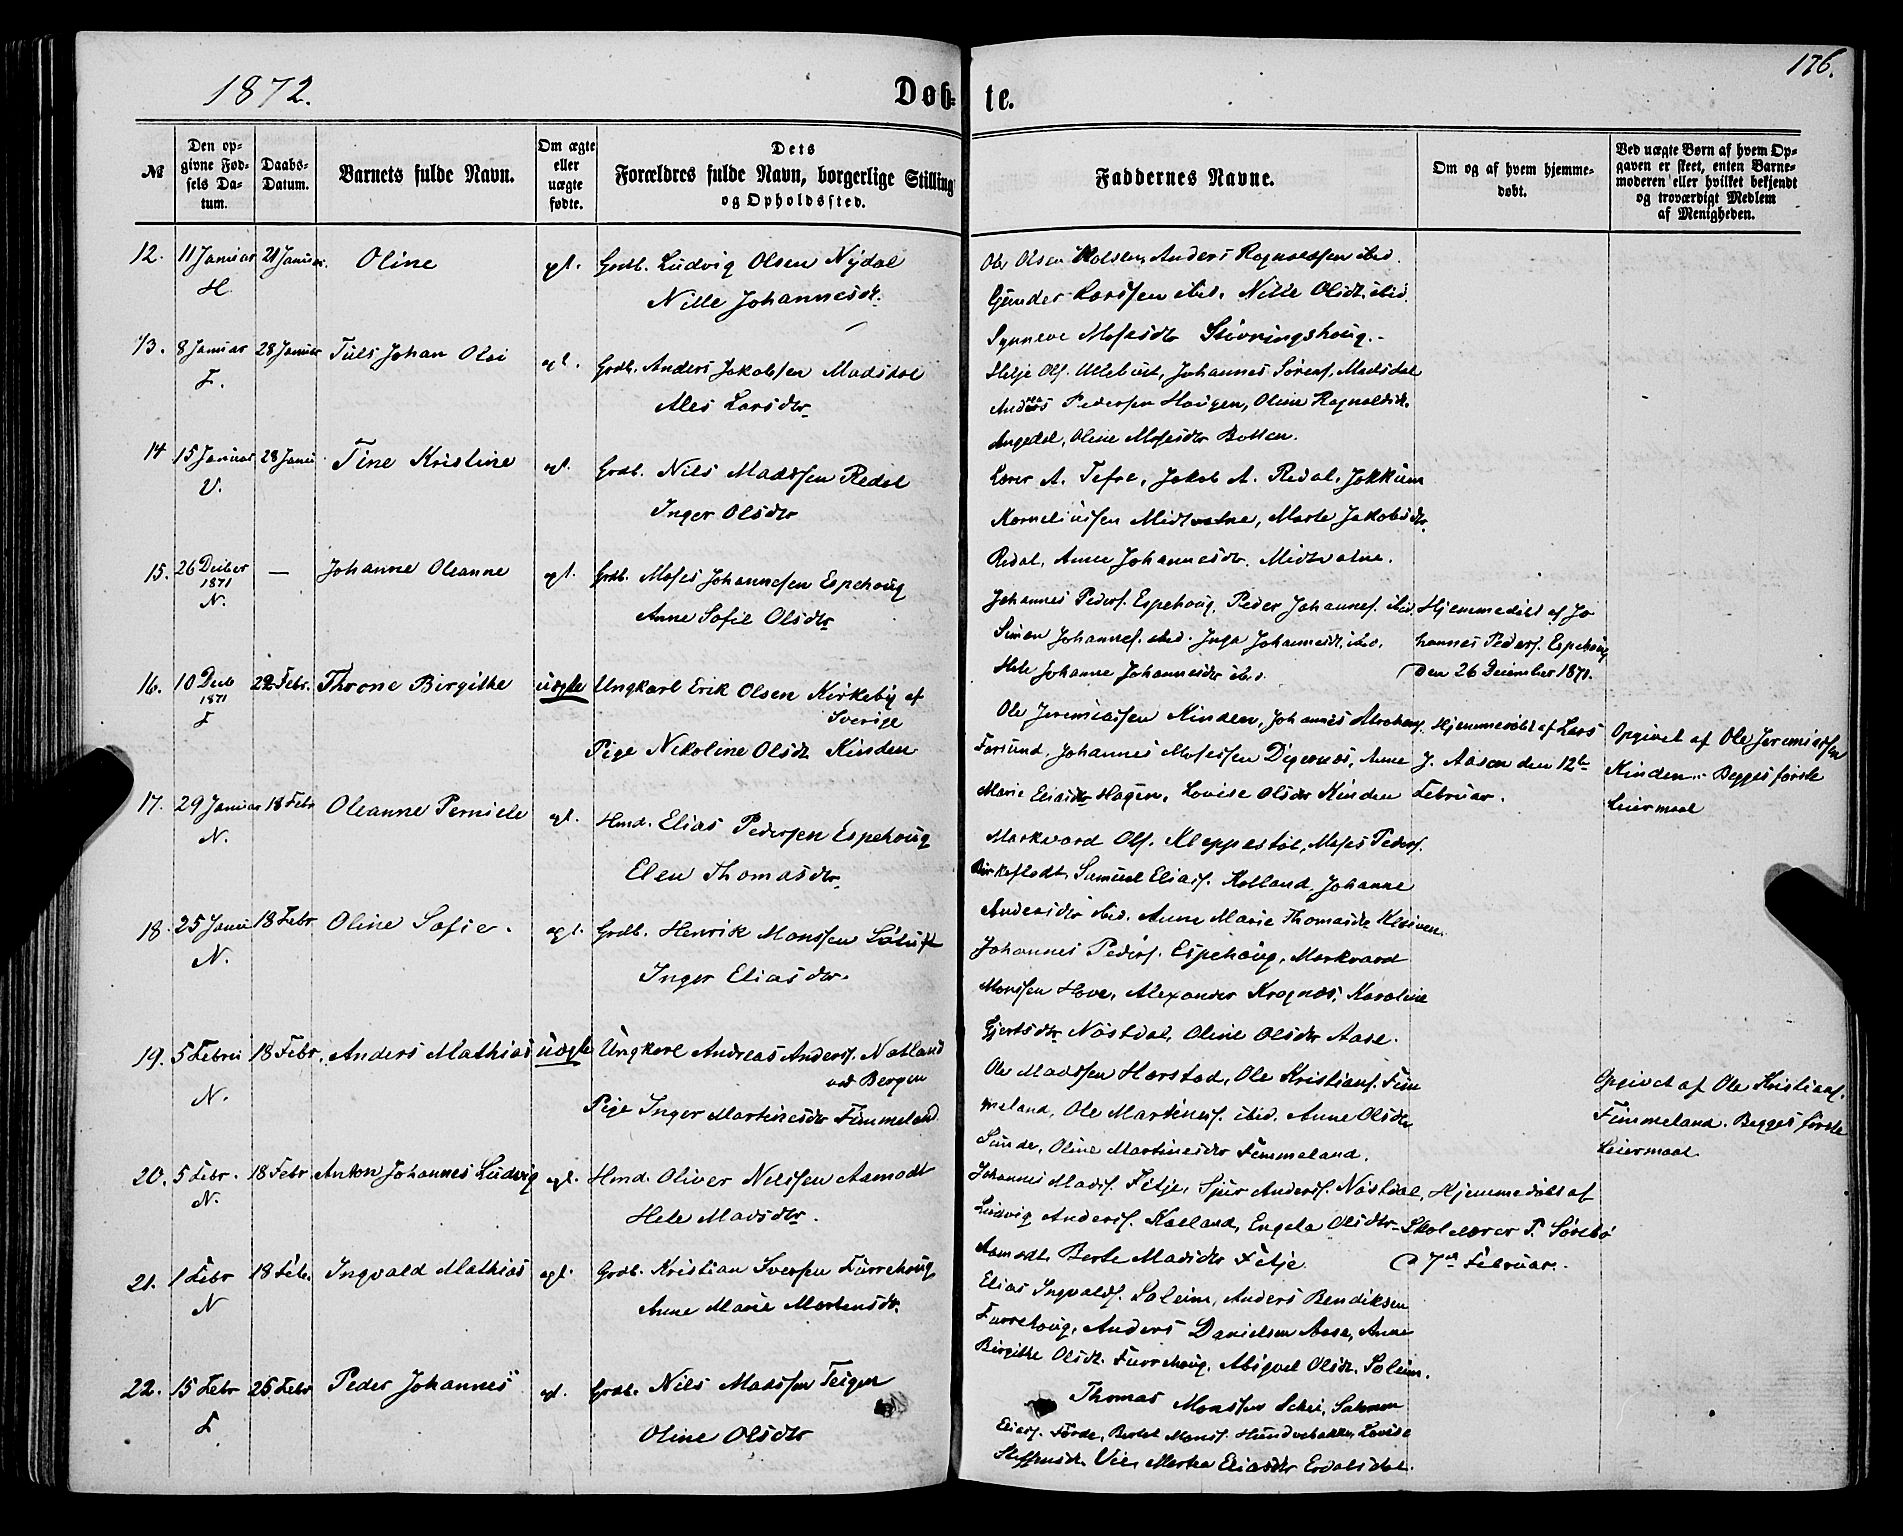 1872.
Døb-te.
176.
№
Den op-
givne Fød-
sels Da-
tum.
Daabs-
Datum.
Barnets fulde Navn.
Om ægte
eller
uægte
fødte.
Dets
Forældres fulde Navn, borgerlige Stilling
og Opholdssted.
Faddernes Navne.
Om og af hvem hjemme-
døbt.
Ved uægte Børn af hvem Op-
gaven er skeet, enten Barne-
moderen eller hvilket bekjendt
og troværdigt Medlem
af Menigheden.
12. 11 Januar 21 Januar. Oline ægt. Grdb. Ludvig Olsen Nydal
H. Nille Johannesdt.
Ole Olsen Anders Ragnvaldsen ibid.
Gjender Larssen ibid. Nille Olsdt. ibid.
Synneve Mosesdtr Støvringshoug.
13. 8 Januar 28 Januar Johan Olai ægt. Grdb. Anders Jakobsen Madsdal
F. Ales Larsdtr.
Helje Ols. Ullebust, Johannes Sørens. Madsdal
Anders Pedersen Hougen, Oline Ragnvaldsdt.
Angedal, Oline Mosesdtr Botten.
14 15 Januar 28 Janu. Tine Kristine ægt. Grdb. Nils Madssen Redal
V. Inger Olsdtr
Lærer A. Tefre, Jakob A. Redal, Jokkum
Korneliussen Midtvatne, Marte Jakobsdtr.
Redal, Anne Johannesdtr. Midtvatne.
15. 26 Decber — Johanne Oleanne ægt. Grdb. Moses Johannesen Espehoug
1871
N. Anne Sofie Olsdtr
Johannes Peders. Espehoug, Peder Johannes. ibid. Hjemmedøbt af Jo
Simon Johannes. ibid. Inga Johannesdt. ibid. hannes Peders. Espehoug
Hele Johanne Johannesdtr ibid. den 26 December 1871.
16. 10 Decb 22 Febr. Throne Birgithe uægte Ungkarl Erik Olsen Kirkeby af
1871 Sverige
F Pige Nikoline Olsdt. Kinden
Ole Jeremiassen Kinden, Johannes Abrahams. Hjemmedøbt af Lars
Førsund, Johannes Mosessen Digernæs, Anne J. Aasen den 12te
Marie Eliasdtr Hagen, Lovise Olsdtr Kinden Februar.
Opgivet af Ole Jeremiassen
Kinden. Begges første
Leiermaal
17. 29 Januar 18 Febr Oleanne Pernille ægt. Hmd. Elias Pedersen Espehoug
N. Elen Thomasdtr.
Markvard Ols. Kleppestøl, Moses Peders.
Birkeflodt, Samuel Elias. Kolland, Johanne
Andersdtr ibid. Anne Marie Thomasdt. Kleiven.
18. 25 Janu 18 Febr Oline Sofie. ægt. Grdb. Henrik Monssen
N. Inger Eliasdtr.
Johannes Peders. Espehoug, Markvard
Monssen Hove, Alexander Krognæs, Karoline
Gjertsdtr. Nøstdal, Oline Olsdtr Aase.
19. 5 Febru 18 Febr. Anders Mathias uægte Ungkarl Andreas Anders. Natland
ved Bergen
N. Pige Inger Martinesdtr Fimmeland
Ole Madssen Horstad, Ole Kristians. Fim
meland, Ole Martines. ibid. Anne Olsdtr
Sunde, Oline Martinesdtr Fimmeland.
Opgivet af Ole Kristians.
Fimmeland. Begges første
Leiermaal
20. 5 Febr. 18 Febr. Anton Johannes Ludvig ægt. Hmd. Oliver Nilssen Aamodt
N. Hele Madsdtr.
Johannes Mads. Fitje, Sjur Anders. Nøstdal, Hjemmedøbt af
Ludvig Anders. Kalland, Engela Olsdtr. Skolelærer P. Sørebø
Aamodt, Berte Madsdtr Fitje d 7de Februar.
21. 1 Febr 18 Febr. Ingvald Mathias ægt. Grdb. Kristian Iversen Furrehoug
N Anne Marie Mortensdt.
Elias Ingvalds. Soleim, Anders Bendiksen
Furrehoug, Anders Danielsen Aase, Anne
Birgithe Olsdt. Furrehoug, Abigael Olsdt. Soleim.
22. 15 Febr 25 Febr Peder Johannes ægt. Grdb. Nils Madssen Teigen
F Oline Olsdtr
Thomas Monssen Schei, Salomon
Elias. Førde, Bertel Mons. Hundvebakke, Lovise
Steffensdt. Vie, Marta Eliasdtr Erdalsdal.